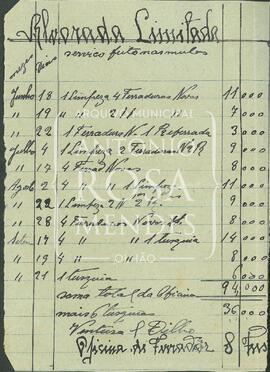 Alvorada Limitada
serviço feito nas mulas
mezes Dias
Junho 18 1 Limpeza 4 Ferraduras Novas 11 000
" 19 4 " " " " 7 000
" 22 1 Ferradura N. 1 Referrada 3 000
Julho 4 1 Limpeza 2 Ferraduras 9 000
" 17 4 Ferrad Novas 8 000
Agos 2 4 " " 1 Limpeza 11 000
" 22 1 Limpeza 2 9 000
" 28 4 Ferraduras 8 000
Setem 17 4 " " " 1 turquia 14 000
" 19 4 " 8 000
" 21 1 turquia 6 000
soma total da Oficina 94 000
mais 6 turquia 36 000
Ventura
Oficina de Ferrador 8
ARQUIVO MUNICIPAL
ANTÓNIO
ROSA
MENDES
OLHÃO